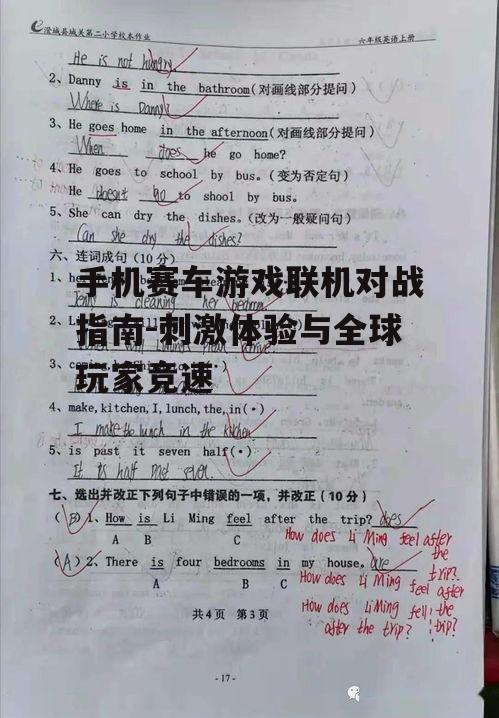 澄城县城关第二小学校本作业 六年级英语上册
He is not hungry
2、Danny is in the bathroom(对画线部分提问)
Where is Danny?
3、He goes home in the afternoon(对画线部分提问)
When does he go home?
4、He goes to school by bus.(变为否定句)
He doesn't go to shool by bus.
5、She can dry the dishes.(改为一般疑问句)
Can she dry the dishes?
六、连词成句(10分)
1、
Jenny is cleaning her bedroom
手机赛车游戏联机对战
2、
指南-刺激体验与全球
3、
玩家竞速
4、make,kitchen,I,lunch,the,in(•)
I make the lunch in the kitchen
5、is past it seven half(•)
It is half past seven.
七、选出并改正下列句子中错误的一项,并改正(10分)
(B)1、How is Li Ming feel after the trip? does
A B C
How does Li Ming feel after the trip?
(A)2、There is four bedrooms in my house. are
A B C
How does Li Ming feel after the trip?
How does Li Ming fell
after the trip?
共4页 第3页
-17-